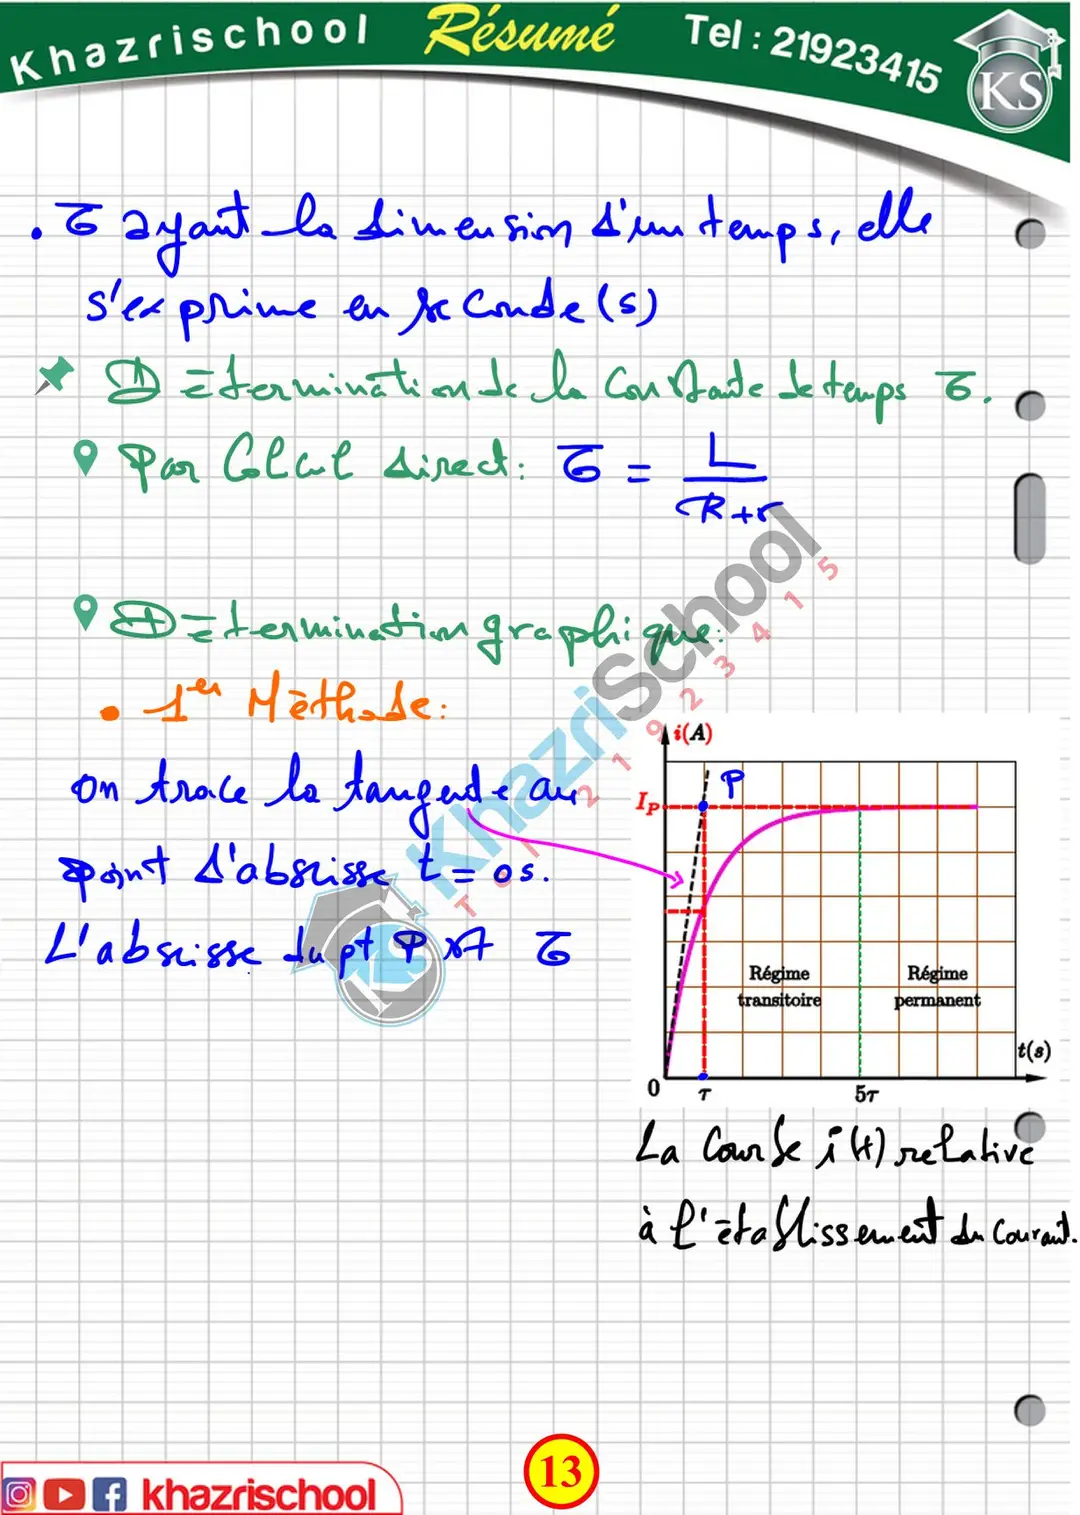 Khazrischool Résumé Tel : 21923415
KS
. τ ayant la dimension d'un temps, elle
s'exprime en seconde (s)
Détermination de la constante de temps τ.
Par Calcul direct: τ = L / (R+r)
Détermination graphique:
• 1er Méthode:
on trace la tangente au
point d'abscisse t = 0s.
L'abscisse du pt P est τ
KhazriSchool
Tel 21923415
KS
i(A)
P
I_P
Régime transitoire
Régime permanent
t(s)
0 τ 5τ
La Courbe i(t) relative
à l'établissement du Courant.
13
khazrischool